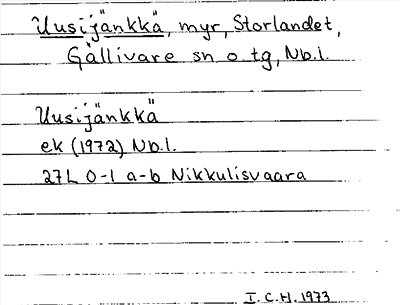 Uusijänkkä, myr, Storlandet,
Gällivare sn o tg, Nb.l.
Uusijänkkä
ek (1972) Nb.l.
27L 0-1 a-b Nikkulisvaara
I.C.H. 1973